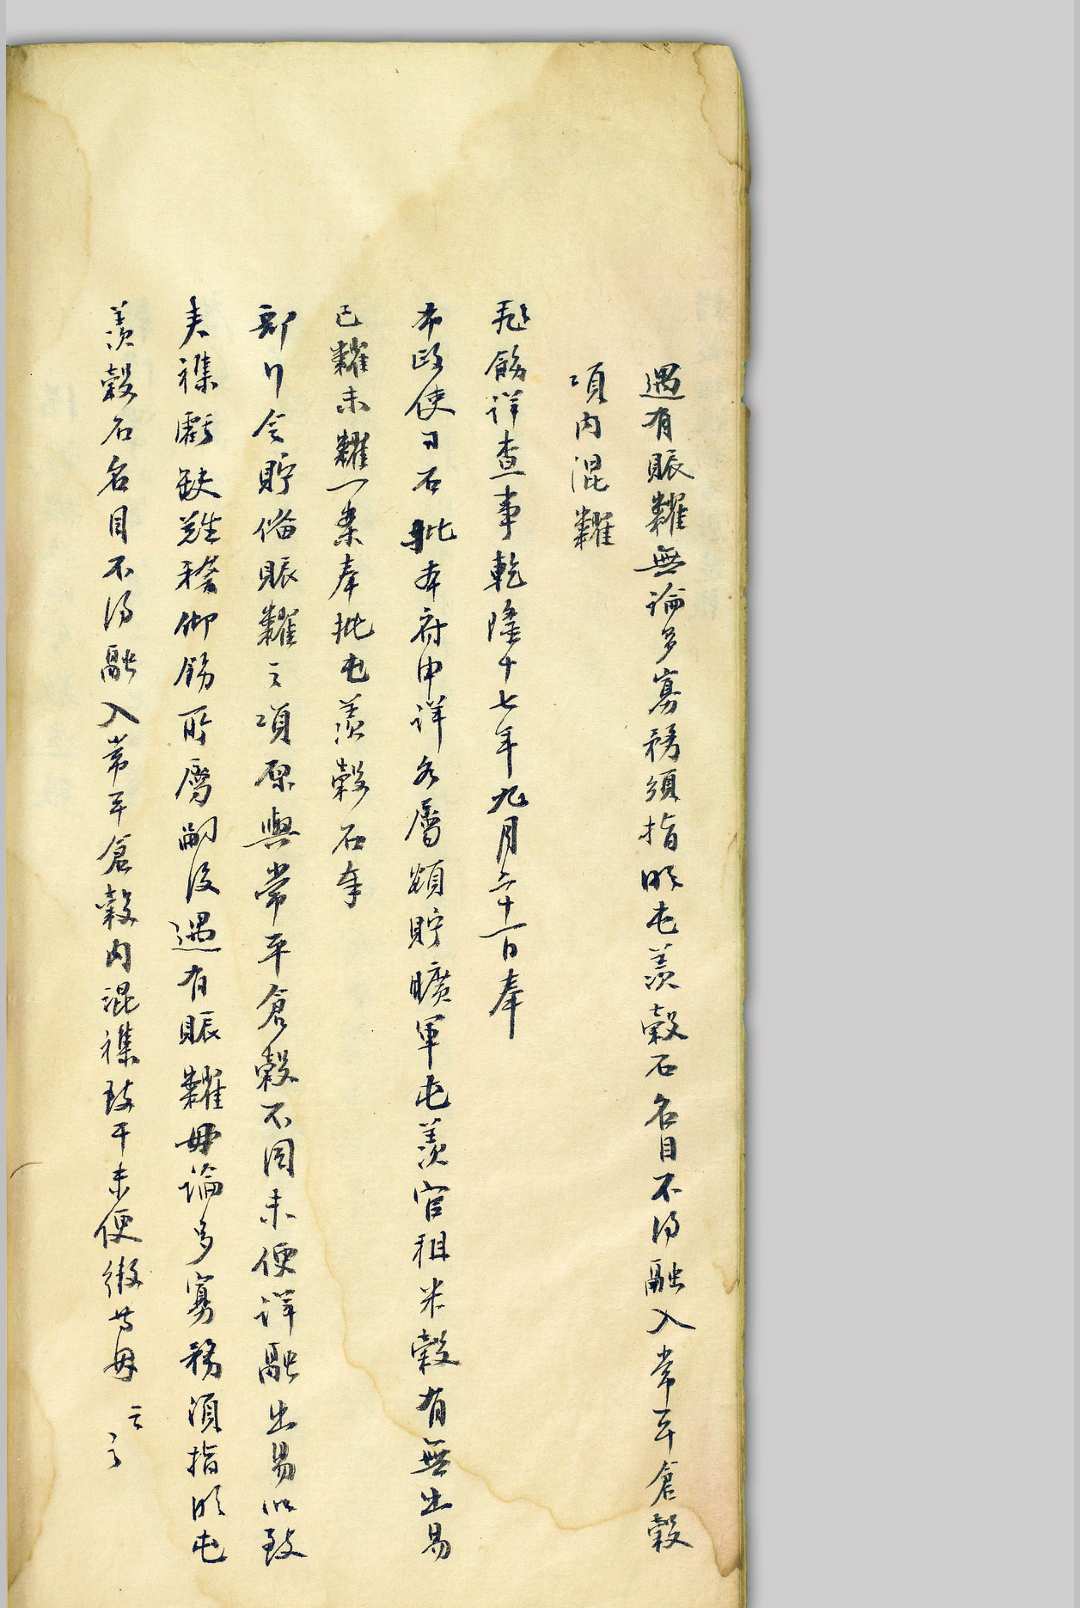 遇有賑糶無論多寡務須指明屯羨穀石名目不得融入常平倉穀
項內混糶
飭詳查事乾隆十七年九月二十一日奉
布政使司石批本府申詳各屬額貯曠軍屯羨官租米穀有無出易
已糶未糶一案奉批屯羨穀石奉
部行令貯備賑糶之項原與常平倉穀不同未便詳融出易以致
夾襍虧缺難稽仰飭所屬嗣後遇有賑糶毋論多寡務須指明屯
羨穀石名目不得融入常平倉穀內混襍致干未便繳
云云